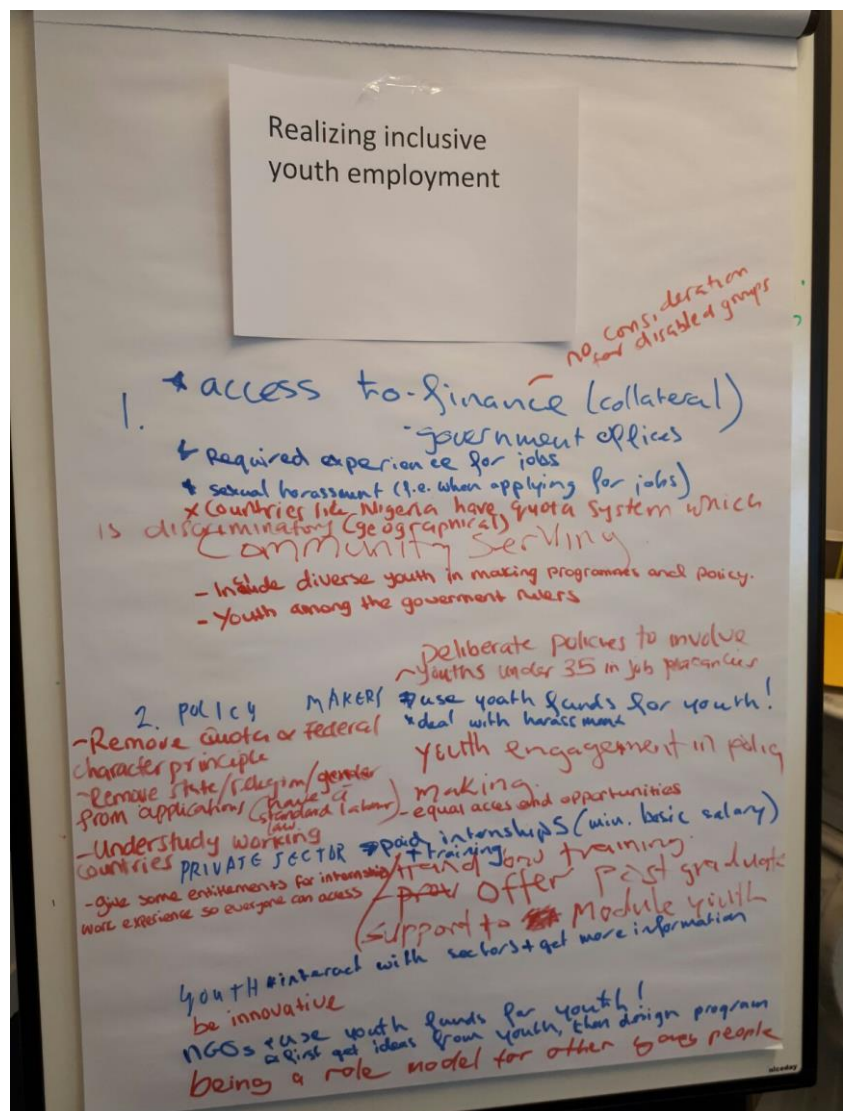 Realizing inclusive
youth employment
no consideration
for disabled groups
1. * access to finance (collateral)
- government offices
* Required experience for jobs
* sexual harassment (i.e. when applying for jobs)
x Countries like Nigeria have quota system which
is discriminatory (geographical)
Community Serving
- Include diverse youth in making programmes and policy.
- Youth among the goverment rulers
Deliberate policies to involve
~ youths under 35 in job
2. POLICY MAKERS * use youth funds for youth!
* deal with harassment
- Remove Quota or Federal
character principle
- Remove state/religion/gender
from applications (have a
standard labour
law)
- Understudy working
countries
youth engagement in policy
making.
- equal acces and opportunities
PRIVATE SECTOR paid internships (min. basic salary)
+ training
- give some entitlements for internship/
work experience so everyone can access
training.
offer Post graduate
support to Module youth
YOUTH * interact with sectors + get more information
be innovative
NGOs * use youth funds for youth!
* first get ideas from youth, then design program
being a role model for other young people
niceday